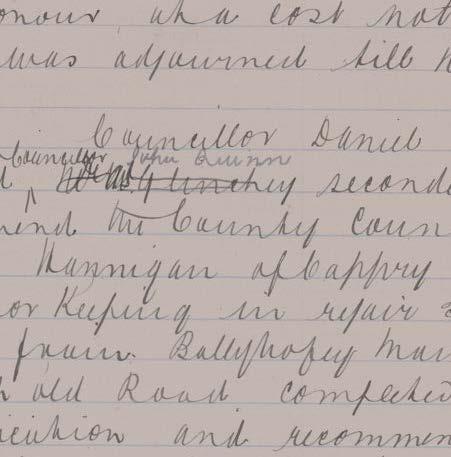 onour, at a cost not
was adjourned till
Councillor Daniel
Councillor John Quinn
seconde
mend the County Coun
Hannigan of Cappry
or Keeping in repair
from Ballybofey Mar
old Road completed
ication and recommen